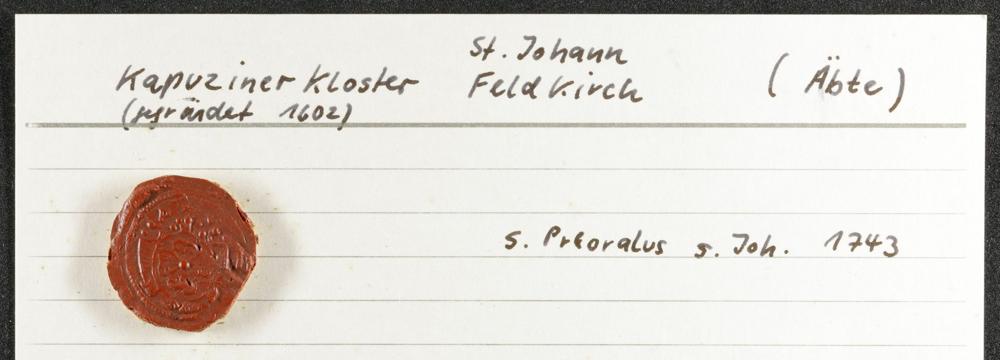 Kapuziner Kloster St. Johann Feldkirch (Äbte)
(gegründet 1602)
S. Prioralus s. Joh. 1743